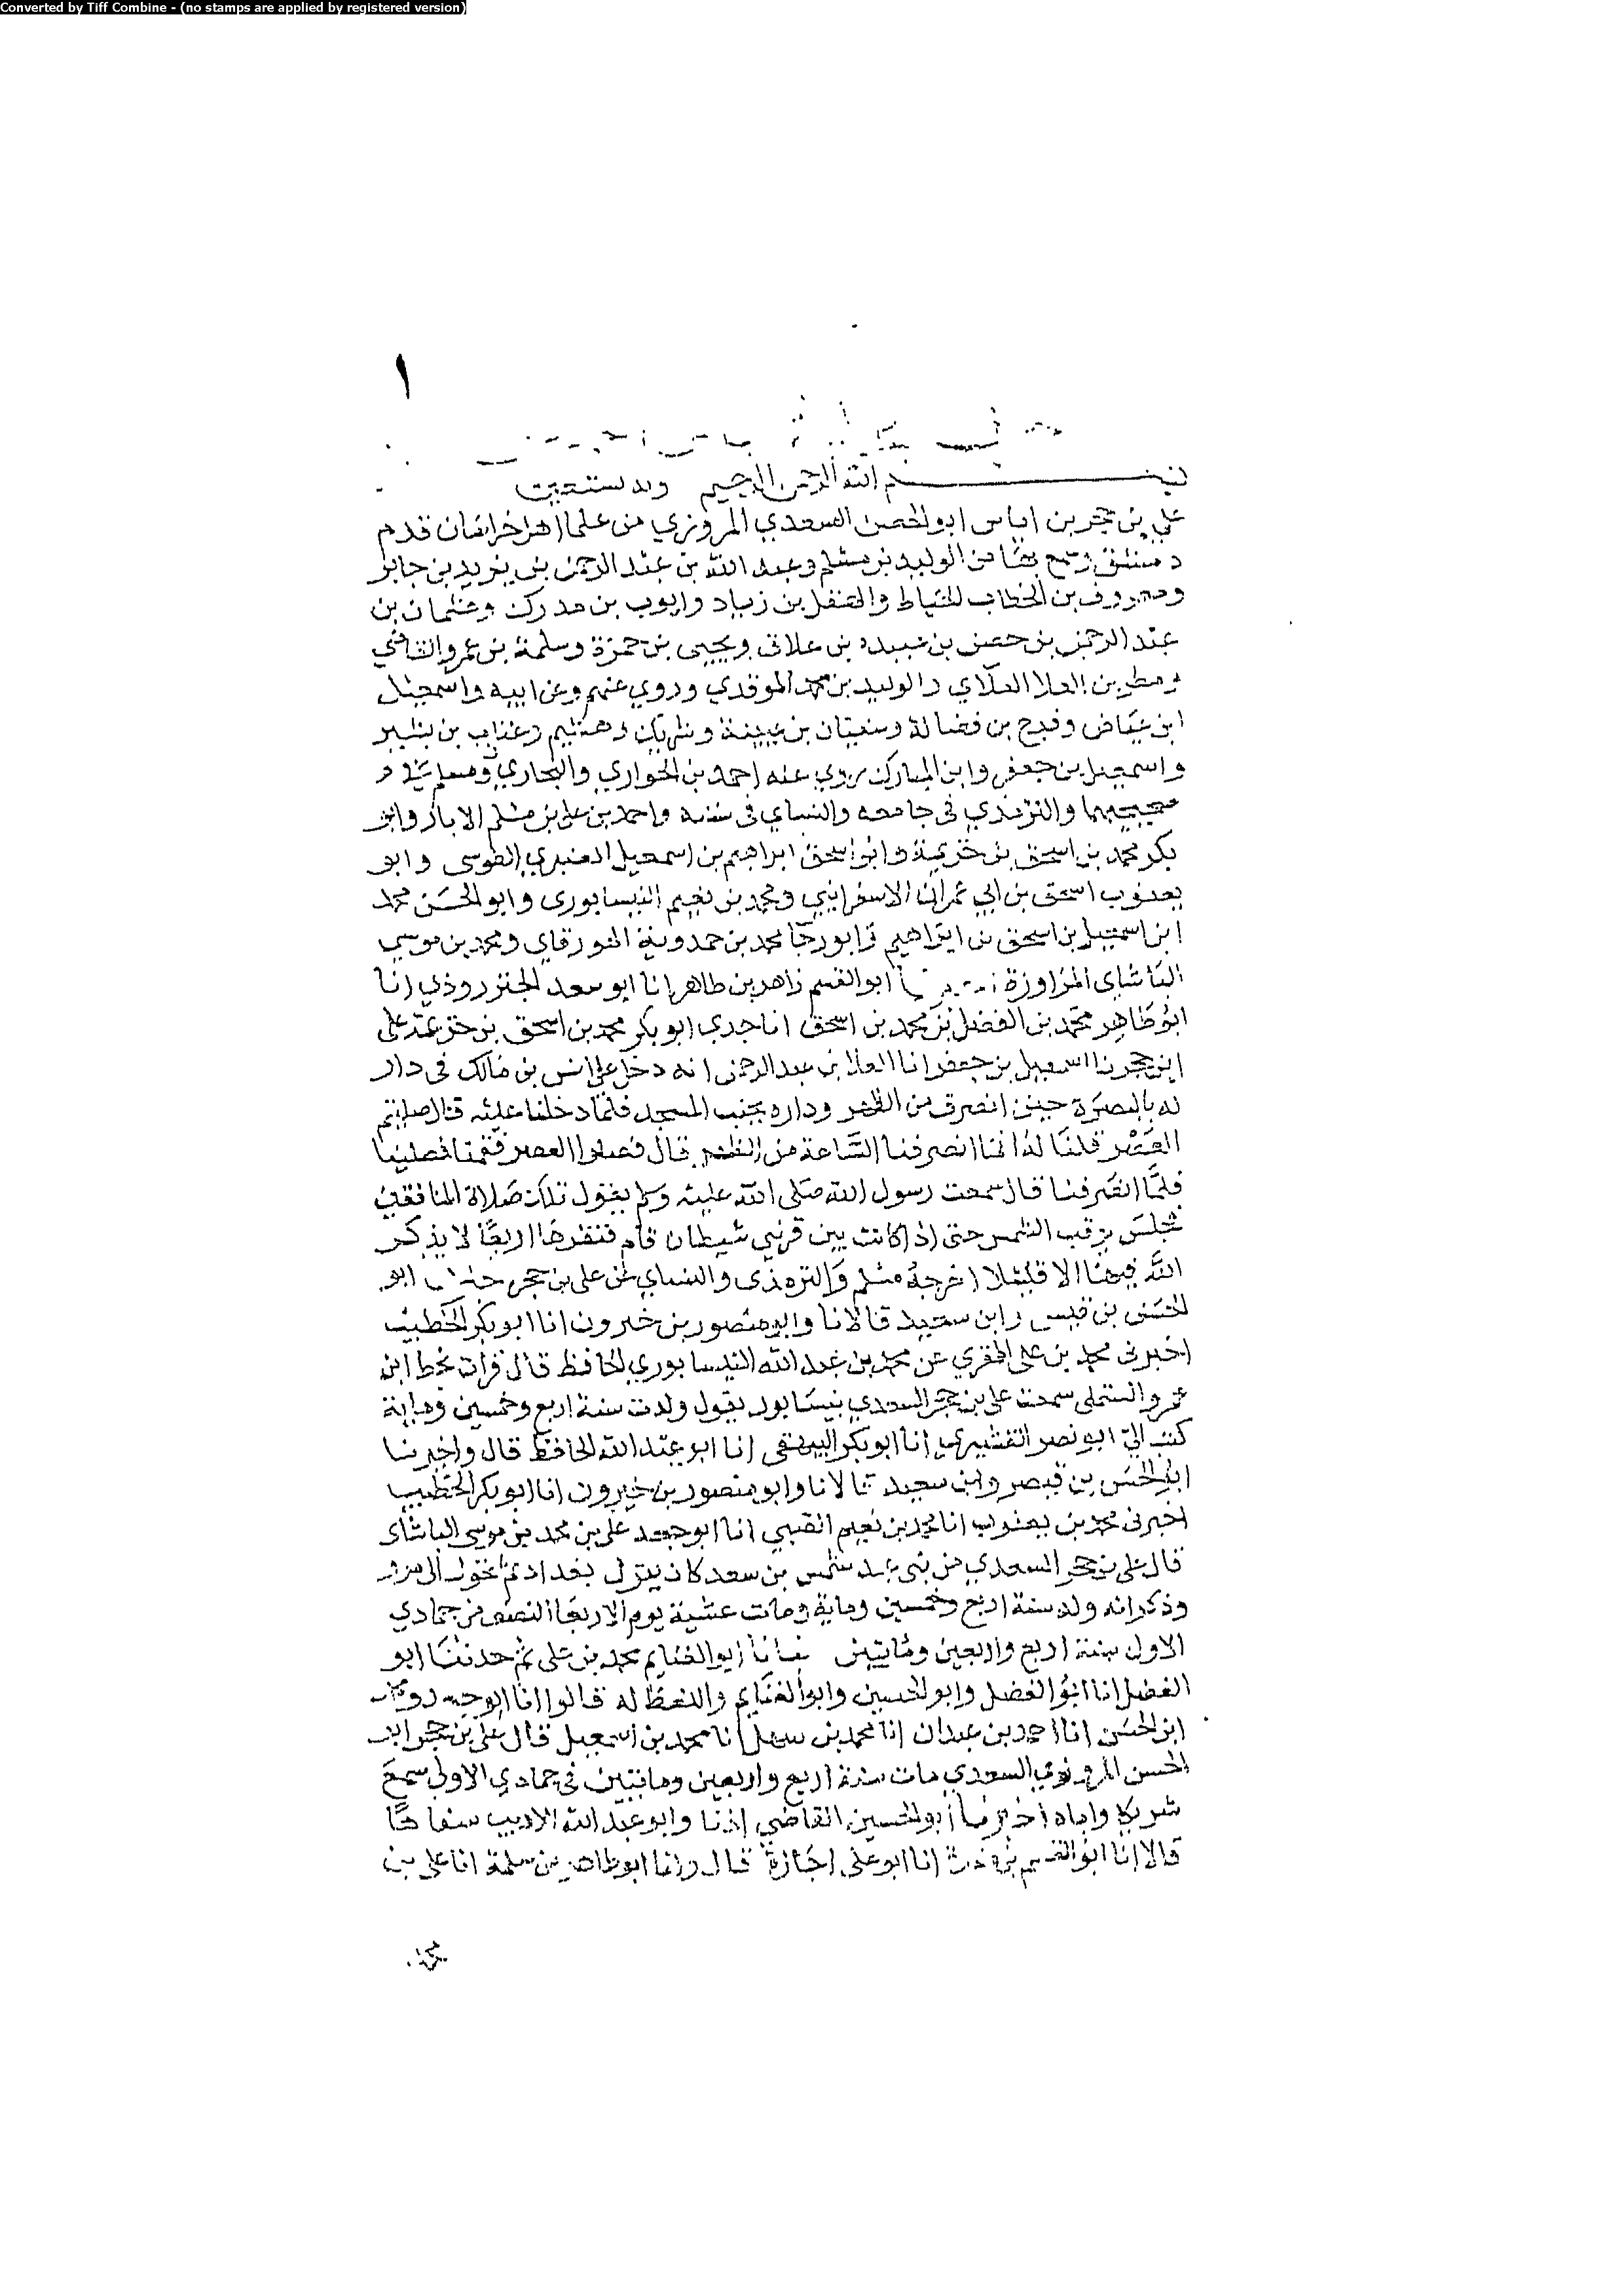 Converted by Tiff Combine - (no stamps are applied by registered version)
١
بسم الله الرحمن الرحيم وبه نستعين
علي بن حجر بن اياس ابو الحسن السعدي المروزي من علما اهل خراسان قدم
دمشق وسمع بها من الوليد بن مسلم وعبد الله بن عبد الرحمن بن يزيد بن جابر
ومعروف بن الخطاب الخياط والهقل بن زياد وايوب بن مدرك وعثمان بن
عبد الرحمن بن حصن بن عبيدة بن علاق ويحيى بن حمزة وسلمة بن عمرو القاضي
ومطر بن العلا الفزاري والوليد بن محمد الموقري وروي عنهم وعن ابيه واسمعيل
ابن عياض وفرج بن فضالة وسفيان بن عيينة وشريك وهشيم وعتاب بن بشير
واسمعيل بن جعفر وابن المبارك روي عنه احمد بن الحواري والبخاري ومسلم في
صحيحيهما والترمذي في جامعه والنساي في سننه واحمد بن علي بن مسلم الابار وابو
بكر محمد بن اسحق بن خزيمة وابو اسحق ابراهيم بن اسمعيل العنبري الطوسى وابو
يعقوب اسحق بن ابي عمران الاسفرايني ومحمد بن نعيم النيسابورى وابو الحسن محمد
ابن اسمعيل بن اسحق بن ابراهيم وابو رجا محمد بن حمدوية الهورقاي ومحمد بن موسي
الباشاي المراوزة ابو القسم زاهر بن طاهر انا ابو سعد الجنزروذي انا
ابو طاهر محمد بن الفضل بن محمد بن اسحق انا جدي ابو بكر محمد بن اسحق بن خزيمة علي
ابن حجر نا اسمعيل بن جعفر انا العلا بن عبد الرحمن انه دخل علي انس بن مالك في دار
له بالبصرة حين انصرف من الظهر وداره بجنب المسجد فلما دخلنا عليه قال صليتم
العصر قلنا له انما انصرفنا الساعة من الظهر قال فصلوا العصر فقمنا فصلينا
فلما انصرفنا قال سمعت رسول الله صلى الله عليه وسلم يقول تلك صلاة المنافقين
يجلس يرقب الشمس حتى اذا كانت بين قرني شيطان قام فنقرها اربعا لا يذكر
الله فيها الا قليلا اخرجه مسلم والترمذى والنساي عن علي بن حجر حدثنا ابو
الحسن بن قبيس وابن سعيد قالا نا وابو منصور بن خيرون انا ابو بكر الخطيب
اخبرنى محمد بن على المقري عن محمد بن عبد الله النيسابوري الحافظ قال قرات بخط ابى
عمرو المستملى سمعت علي بن حجر السعدي بنيسابور يقول ولدت سنة اربع وخمسين وماية
كتب الي ابو نصر القشيري انا ابو بكر البيهقى انا ابو عبد الله الحافظ قال واخبرنا
ابو الحسن بن قبيس وابن سعيد قالا نا وابو منصور بن خيرون انا ابو بكر الخطيب
اخبرنى محمد بن يعقوب انا محمد بن نعيم الضبي انا ابو جعفر علي بن محمد بن موسى الباشاى
قال علي بن حجر السعدي من بنى عبد شمس بن سعد كان ينزل بغداد ثم تحول الى مرو
وذكر انه ولد سنة اربع وخمسين وماية ومات عشية يوم الاربعا النصف من جمادي
الاول سنة اربع واربعين وماتين انبانا ابو الغنايم محمد بن على ثم حدثنا ابو
الفضل انا ابو الفضل وابو الحسين وابو الغنايم واللفظ له قالوا انا ابو احمد زاد محمد
ابن الحسن انا احمد بن عبدان انا محمد بن سهل انا محمد بن اسمعيل قال علي بن حجر ابو
الحسن المروزي السعدي مات سنة اربع واربعين وماتين في جمادي الاولى سمع
شريكا واباه اخبرنا ابو الحسين القاضي اذنا وابو عبد الله الاديب شفاها
قالا انا ابو القسم بن مندة انا ابو علي اجازة قال وانا ابو طاهر بن سلمة انا علي بن
محمد